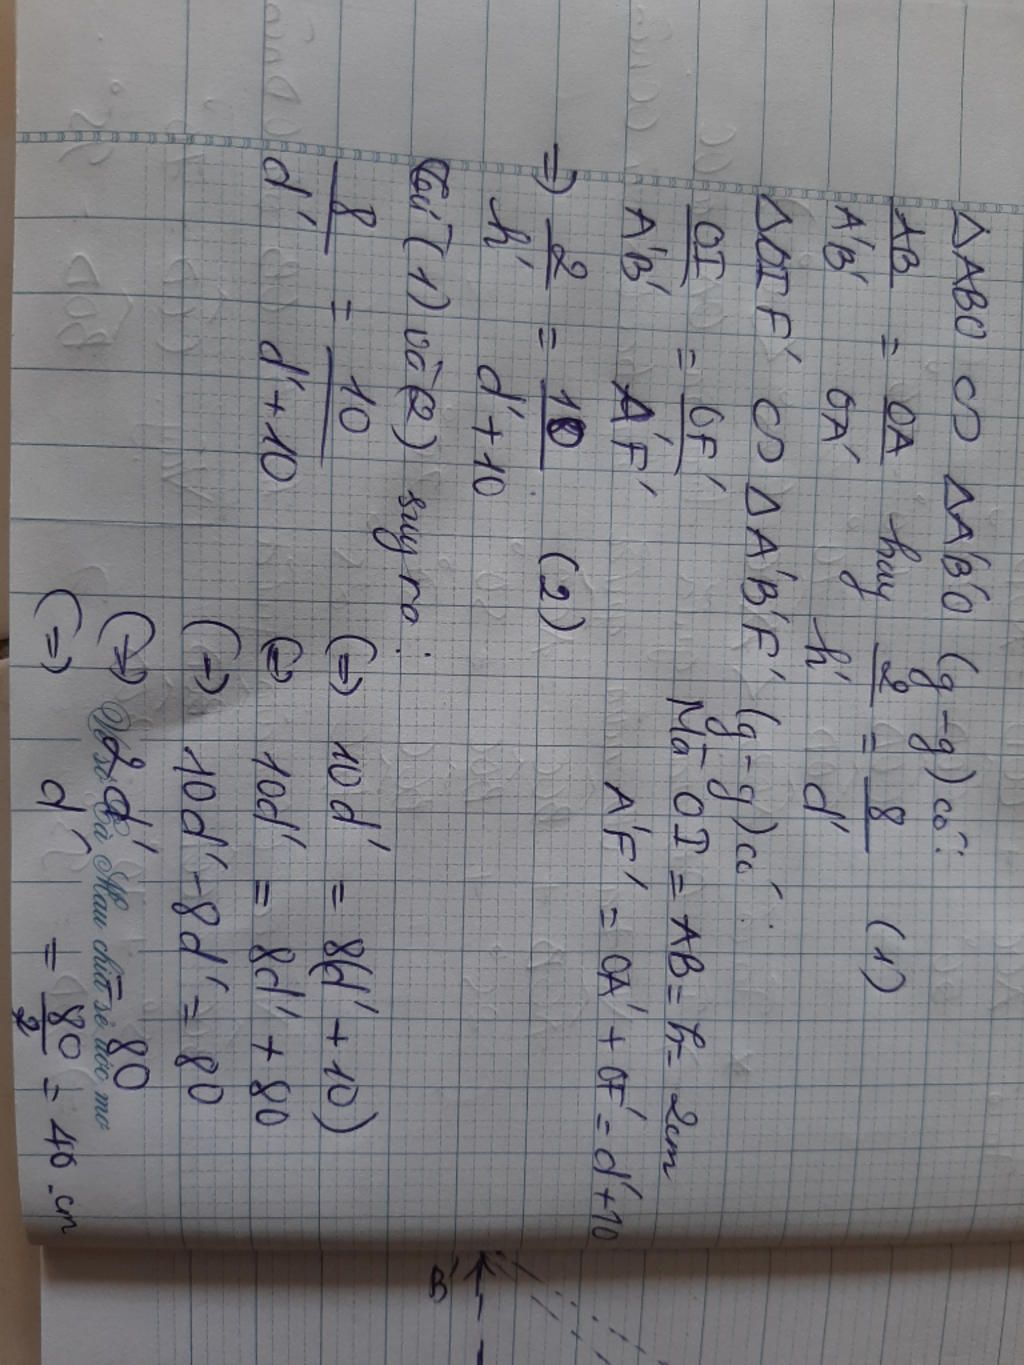 ΔABO ∽ ΔA'B'O (g-g) có:
AB/A'B' = OA/OA' hay 2/h' = 8/d' (1)
ΔOIF' ∽ ΔA'B'F' (g-g) có:
OI/A'B' = OF'/A'F' Mà OI = AB = h = 2cm
A'F' = OA' + OF' = d' + 10
=> 2/h' = 10/d'+10 (2)
Từ (1) và (2) suy ra:
8/d' = 10/d'+10 (=) 10d' = 8(d' + 10)
(=) 10d' = 8d' + 80
(=) 10d' - 8d' = 80
(=) 2d' = 80
(=) d' = 80/2 = 40 cm
B'